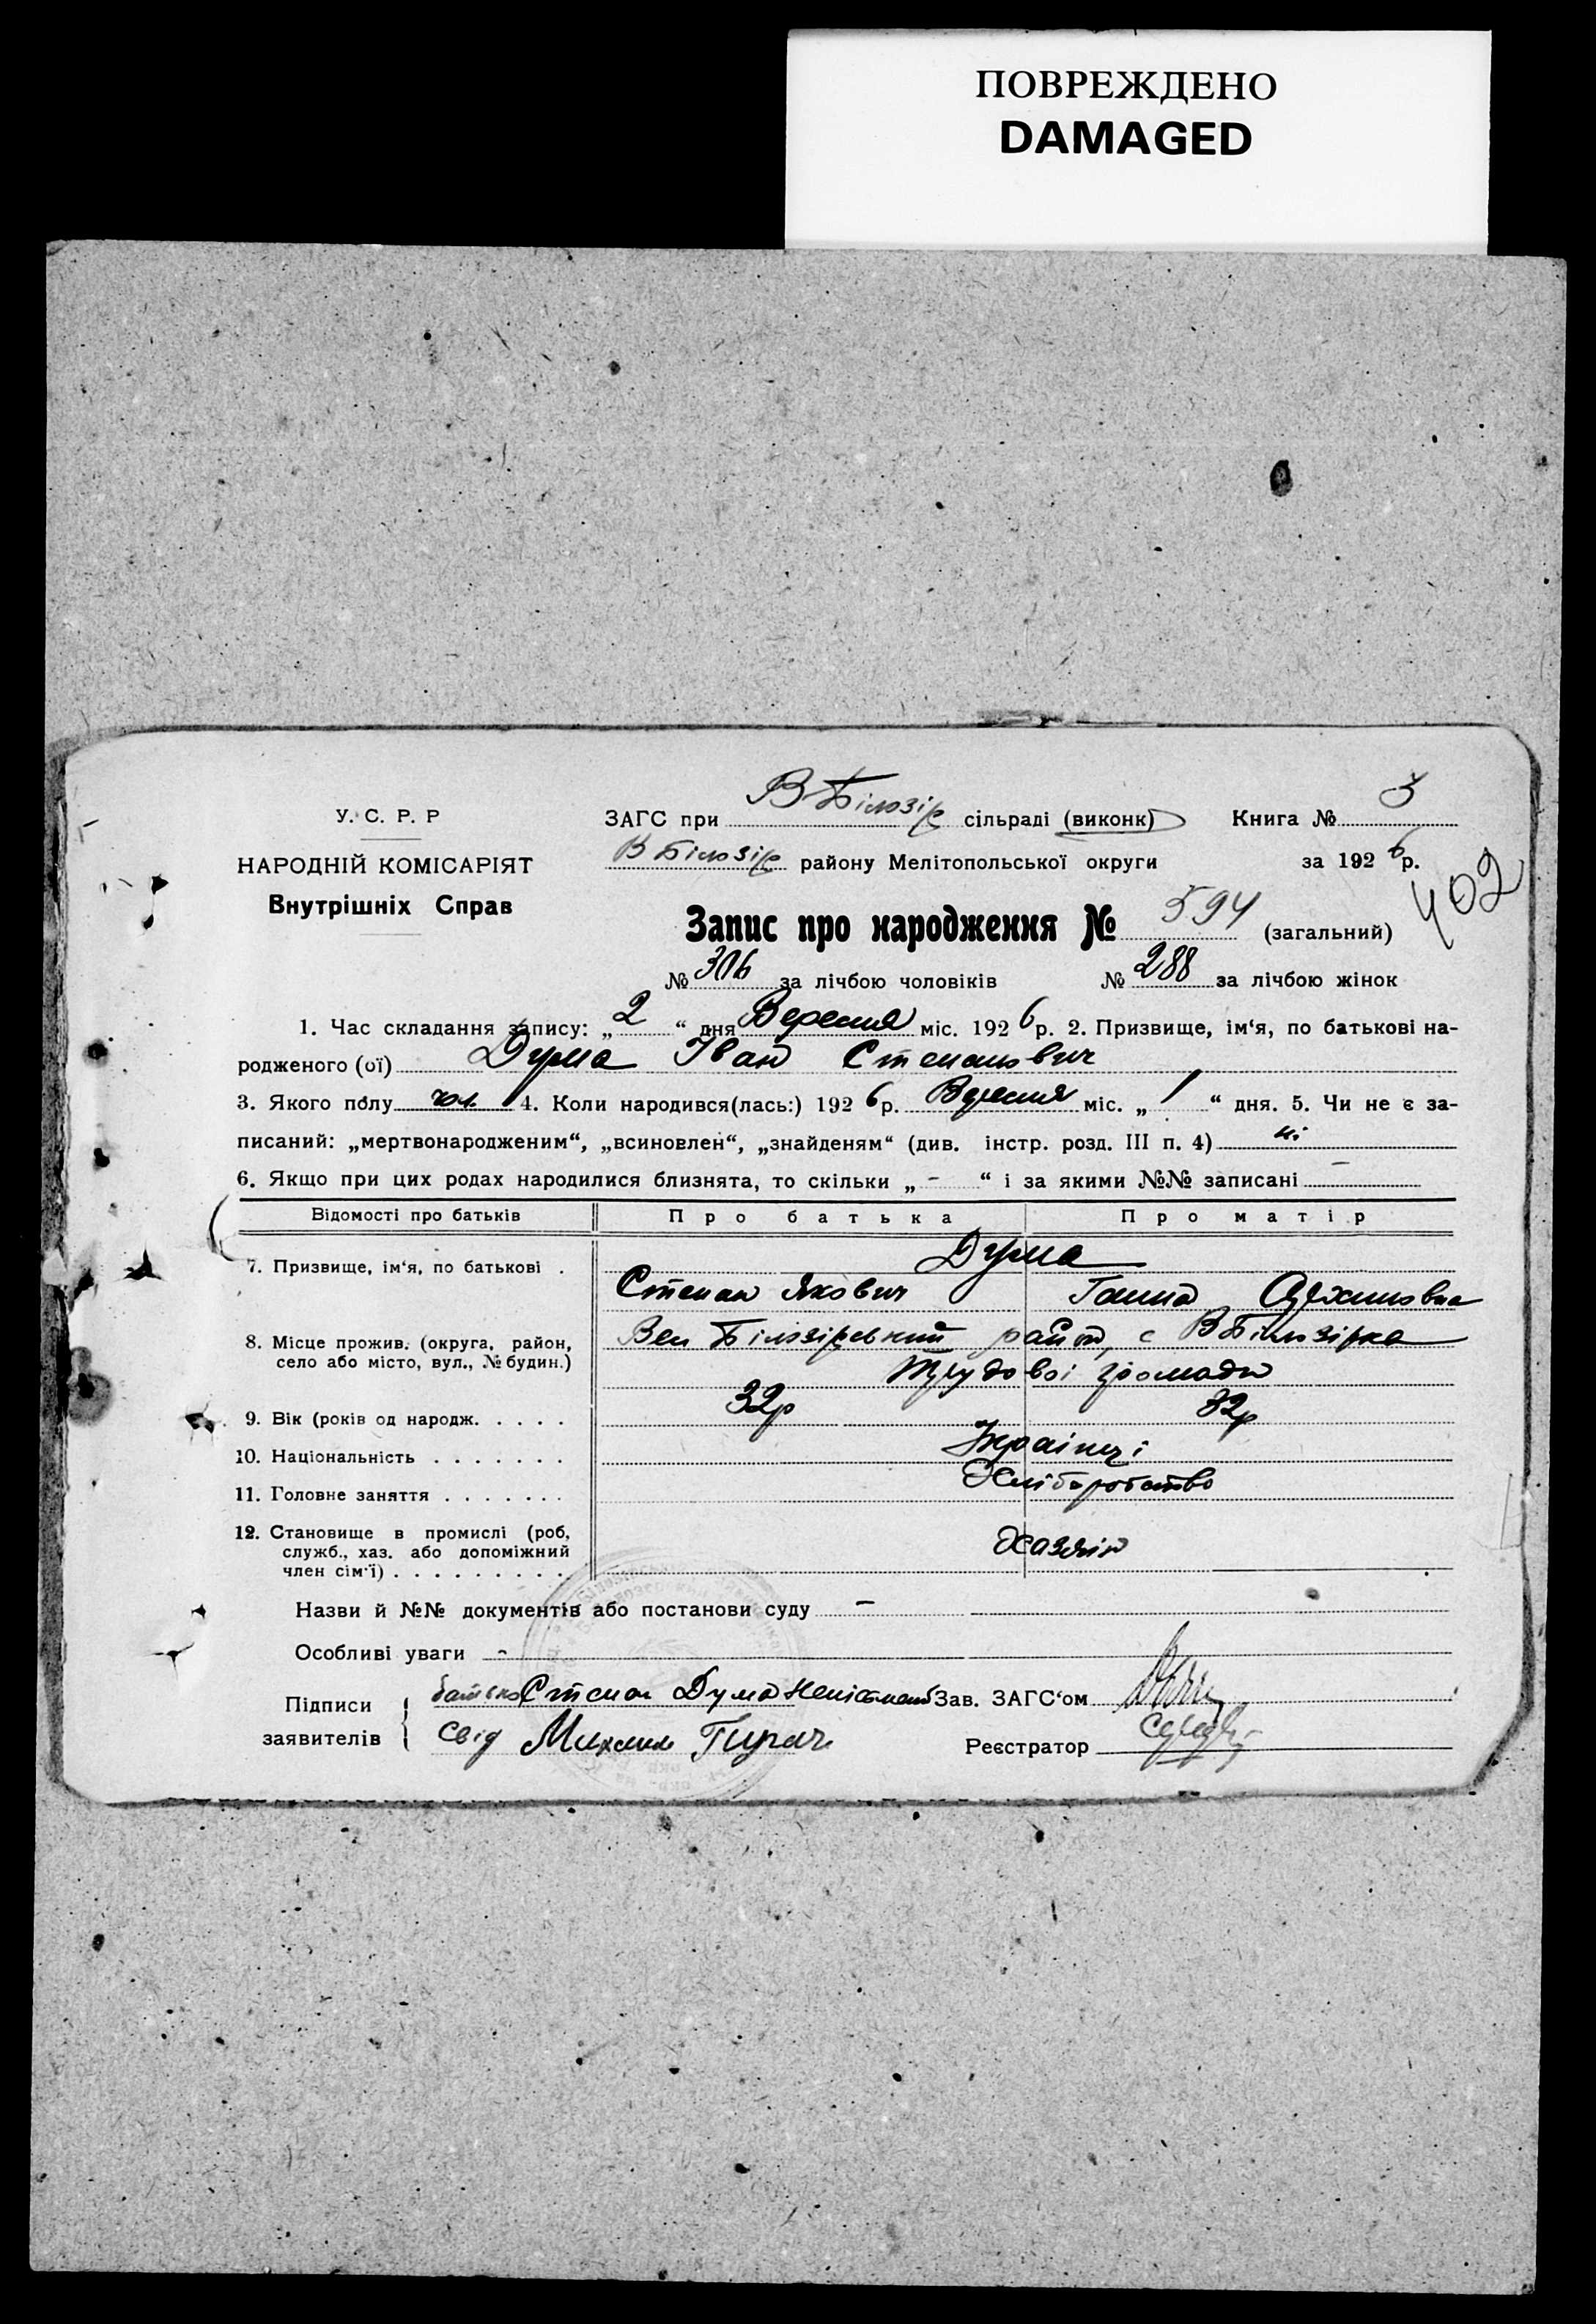 ПОВРЕЖДЕНО
DAMAGED
У. С. Р. Р
НАРОДНІЙ КОМІСАРІЯТ
Внутрішніх Справ
ЗАГС при В Білозір сільраді (виконк) Книга № 3
В Білозір району Мелітопольської округи за 1926 р.
402
Запис про народження № 594 (загальний)
№ 306 за лічбою чоловіків № 288 за лічбою жінок
1. Час складання запису: „2“ дня Вересня міс. 1926 р. 2. Призвище, ім‘я, по батькові на-
родженого (ої) Дума Іван Степанович
3. Якого полу чол. 4. Коли народився(лась:) 1926 р. Вересня міс. „1“ дня. 5. Чи не є за-
писаний: „мертвонародженим“, „всиновлен“, „знайденям“ (див. інстр. розд. III п. 4) ні
6. Якщо при цих родах народилися близнята, то скільки „-“ і за якими №№ записані –
Відомості про батьків Про батька Про матір
7. Призвище, ім‘я, по батькові . Дума
Степан Якович Ганна
8. Місце прожив. (округа, район, село або місто, вул., № будин.) Вел Білозірський район, с ВБілозірка
Трудової громади
9. Вік (років од народж. . . . . 32р 32р
10. Національність . . . . . . . Українці
11. Головне заняття . . . . . . . Хліборобство
12. Становище в промислі (роб, служб., хаз. або допоміжний член сім‘ї) . . . . . . . . . Хазяїн
Назви й №№ документів або постанови суду –
Особливі уваги -
Підписи заявителів { батько Степан Дума неписьмен Зав. ЗАГС‘ом
свід Михайло Реєстратор